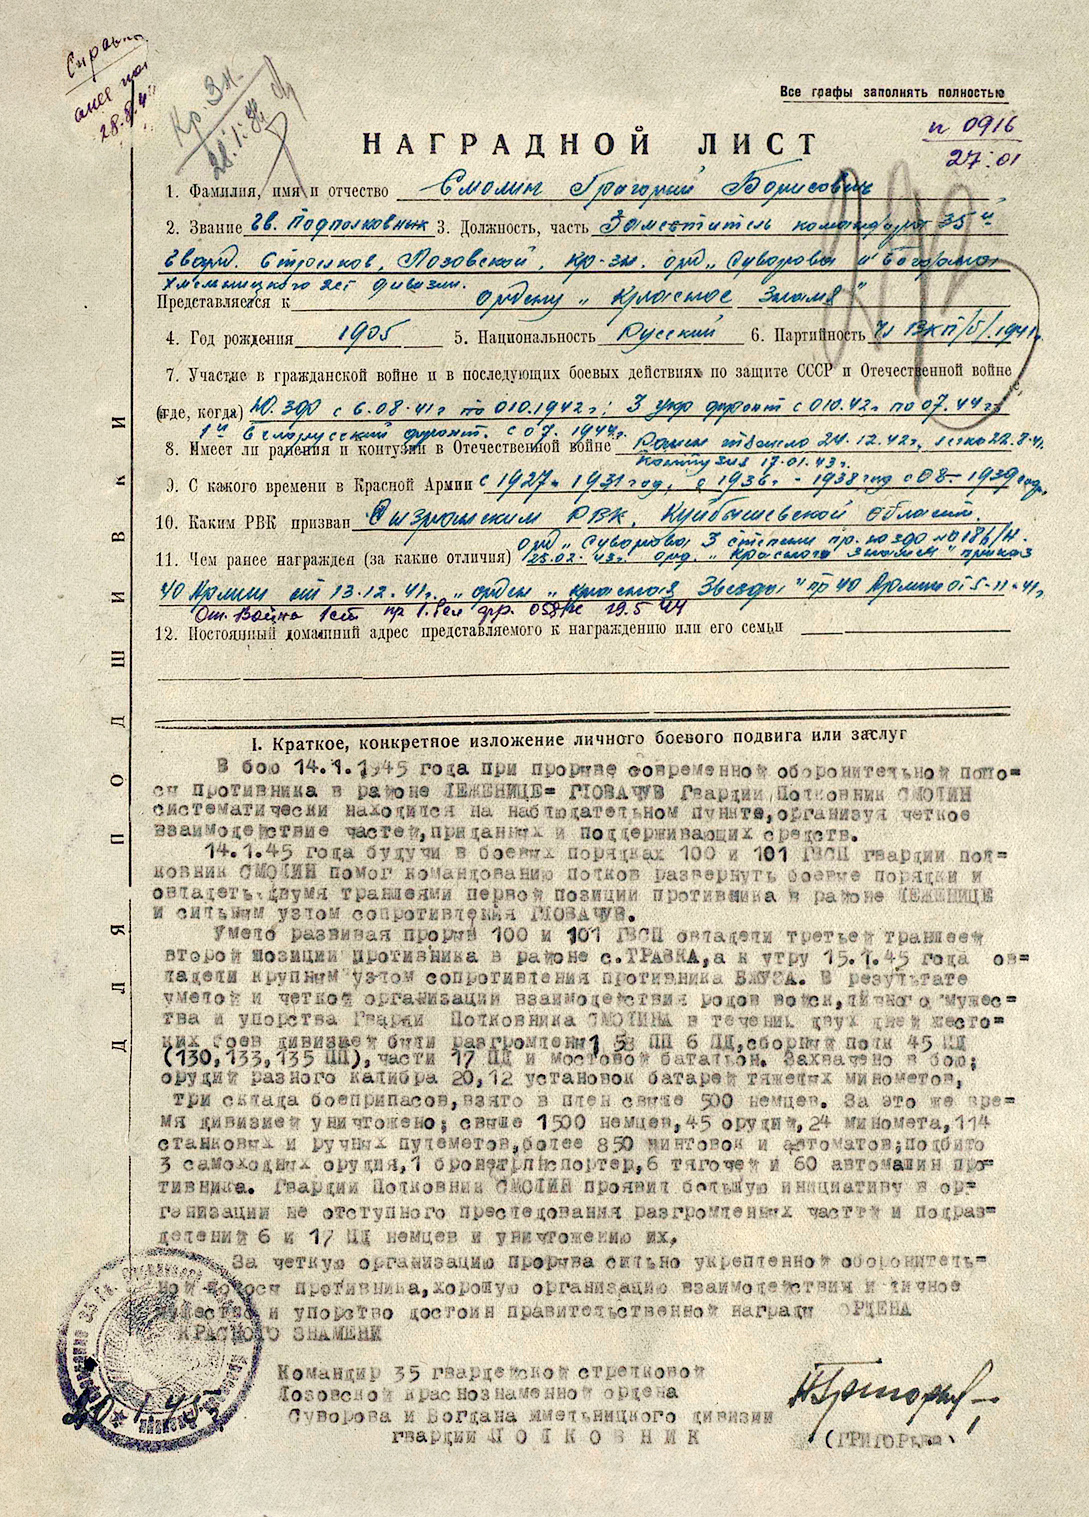 Кр. Зн.
Все графы заполнять полностью
п 0916
27.01
НАГРАДНОЙ ЛИСТ
1. Фамилия, имя и отчество Смолин Григорий Борисович
2. Звание Гв. Подполковник 3. Должность, часть Заместитель командира 35 й
Гвард. Стрелков. Лозовской, кр-зн. орд. „Суворова и Богдана
Хмельницкого 2ст дивизии.
Представляется к ордену „Красное Знамя"
4. Год рождения 1905 5. Национальность Русский 6. Партийность Чл ВКП/б/.1941г.
7. Участие в гражданской войне и в последующих боевых действиях по защите СССР и Отечественной войне
(где, когда) Ю.Зфр с 6.08.41г по 010.1942г; 3 укр фронт с 010.42г по 07.44г
1й Белорусский фронт. с 07.1944г.
8. Имеет ли ранения и контузии в Отечественной войне Ранен тяжело 24.12.42г, легко 22.8.41.
контузия 17.01.43г.
9. С какого времени в Красной Армии с 1927 - 1931 год, с 1936г - 1938 год с 08-1939 года
10. Каким РВК призван Сызранским РВК, Куйбышевской области.
орд „Суворова 3 степени пр. ЮЗФр № 186/н.
11. Чем ранее награжден (за какие отличия) 25.02.43г. орд. „Красного Знамени" приказ
40 Армии от 13.12.41г. „орден „Красная Звезда" пр 40 Армии от 5-11-41г
От. Война 1ст пр 1. Бел фр. 058/н 29.5 44
12. Постоянный домашний адрес представляемого к награждению или его семьи
ДЛЯ ПОДШИВКИ
I. Краткое, конкретное изложение личного боевого подвига или заслуг
В бою 14.1.1945 года при прорыве современной оборонительной поло=
сы противника в районе ЛЕЖЕНИЦЕ= ГЛОВАЧУВ Гвардии Полковник СМОЛИН
систематически находился на наблюдательном пункте, организуя четкое
взаимодействие частей, приданных и поддерживающих средств.
14.1.45 года будучи в боевых порядках 100 и 101 ГВСП гвардии пол=
ковник СМОЛИН помог командованию полков развернуть боевые порядки и
овладеть двумя траншеями первой позиции противника в районе ЛЕЖЕНИЦЕ
и сильным узлом сопротивления ГЛОВАЧУВ.
Умело развивая прорыв 100 и 101 ГВСП овладели третьей траншеей
второй позиции противника в районе с. ТРАВКА, а к утру 15.1.45 года ов=
ладели крупным узлом сопротивления противника БЖУЗА. В результате
умелой и четкой организации взаимодействия родов войск, личного мужес=
тва и упорства Гварди Полковника СМОЛИНА в течении двух дней жесто=
ких боев дивизией были разгромлены 58 ПП 6 ПД, сборный полк 45 ПД
(130,133,135 ПП), части 17 ПД и мостовой батальон. Захвачено в бою;
орудий разного калибра 20, 12 установок батарей тяжелых минометов,
три склада боеприпасов, взято в плен свыше 500 немцев. За это же вре=
мя дивизией уничтожено; свыше 1500 немцев, 45 орудий, 24 миномета, 114
станковых и ручных пулеметов, более 850 винтовок и автоматов; подбито
3 самоходных орудия, 1 бронетрпнспортер, 6 тягочей и 60 автомашин про=
тивника. Гвардии Полковник СМОЛИН проявил большую инициативу в ор=
ганизации не отступного преследования разгромленных частей и подраз=
делений 6 и 17 ПД немцев и уничтожению их.
За четкую организацию прорыва сильно укрепленной оборонитель=
ной полосы противника, хорошую организацию взаимодействия и личное
мужество и упорство достоин правительственной награды ОРДЕНА
КРАСНОГО ЗНАМЕНИ
Командир 35 гвардейской стрелковой
Лозовской краснознаменной ордена
Суворова и Богдана Хмельницкого дивизии
гвардии ПОЛКОВНИК
(ГРИГОРЬЕВ)
20.1.45г